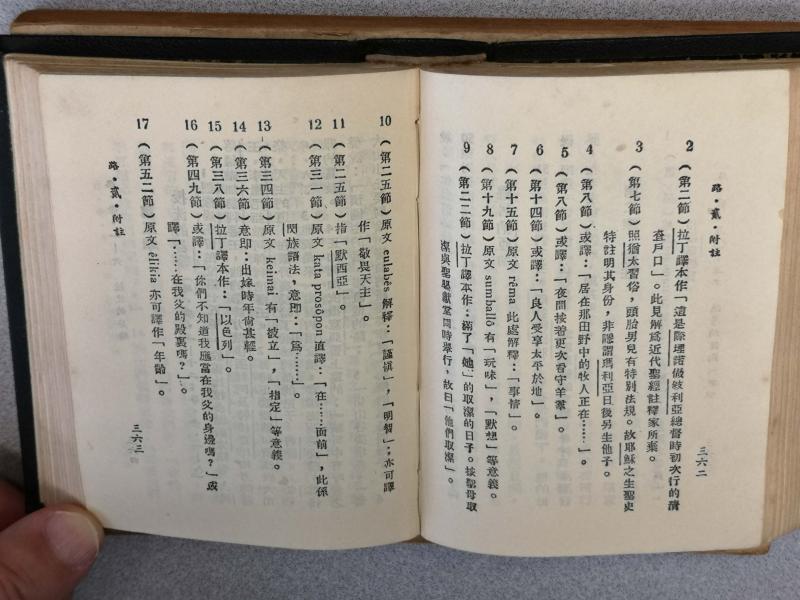 路・貳・附註
2 (第二節) 拉丁譯本作「這是際理諾做敘利亞總督時初次行的清
查戶口」。此見解爲近代聖經註釋家所棄。
3 (第七節) 照猶太習俗，頭胎男兒有特別法規。故耶穌之生聖史
特註明其身份，非謂瑪利亞日後另生他子。
4 (第八節) 或譯：「居在那田野中的牧人正在……」。
5 (第八節) 或譯：「夜間按着更次看守羊羣」。
6 (第十四節) 或譯：「良人受享太平於地」。
7 (第十五節) 原文「rêma 此處解釋：「事情」。
8 (第十九節) 原文 sumballô 有「玩味」，「默想」等意義。
9 (第二二節) 拉丁譯本作：滿了「她」的取潔的日子。按聖母取
潔與聖嬰獻堂同時舉行，故曰「他們取潔」。
三六二
10 (第二五節) 原文 eulabês 解釋：「謹愼」，「明智」：亦可譯
作「敬畏天主」。
11 (第二五節) 指「默西亞」。
12 (第三一節) 原文 kata prosôpon 直譯：「在……面前」，此係
閃族語法，意即：「爲……」。
13 (第三四節) 原文 keimai 有「被立」，「指定」等意義。
14 (第三六節) 意即：出嫁時年尙甚輕。
15 (第三八節) 拉丁譯本作：「以色列」。
16 (第四九節) 或譯：「你們不知道我應當在我父的身邊嗎？」或
譯「……在我父的殿裏嗎？」。
17 (第五二節) 原文 êlikia 亦可譯作「年齡」。
路・貳・附註
三六三